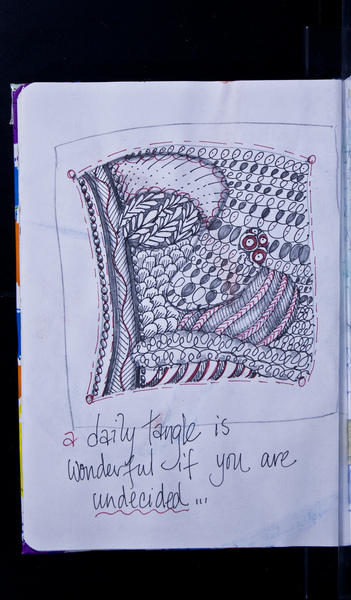 a daily tangle is
wonderful if you are
undecided ...